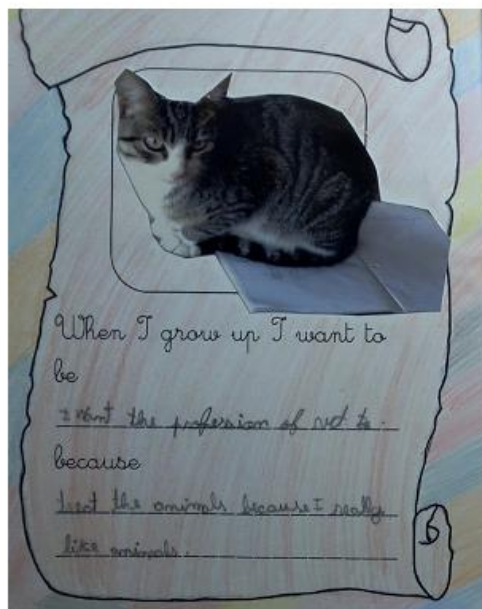 When I grow up I want to
be
I want the profession of vet to.
because
treat the animals because I really
like animals.
6